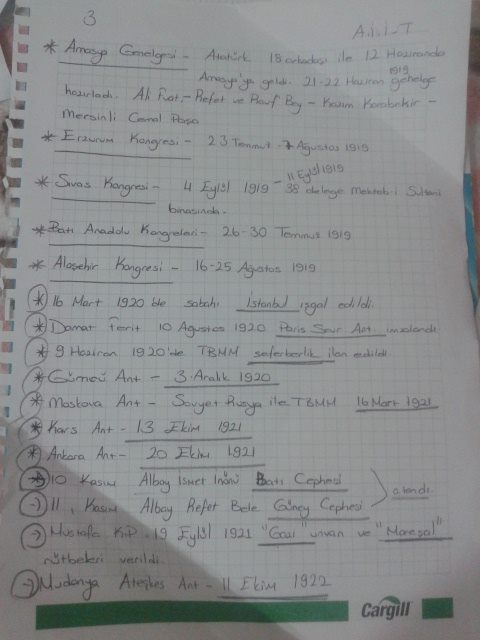 3
A.İ.İ.T
* Amasya Genelgesi - Atatürk 18 arkadaşı ile 12 Haziranda
Amasya'ya geldi. 21-22 Haziran 1919 genelge
hazırladı. Ali Fuat - Refet ve Rauf Bey - Kazım Karabekir -
Mersinli Cemal Paşa
* Erzurum Kongresi - 23 Temmuz - 7 Ağustos 1919
* Sivas Kongresi - 4 Eylül 1919 - 11 Eylül 1919 38 delege Mekteb-i Sultani
binasında.
* Batı Anadolu Kongreleri - 26-30 Temmuz 1919
* Alaşehir Kongresi - 16-25 Ağustos 1919
* 16 Mart 1920'de sabahı İstanbul işgal edildi.
* Damat Ferit 10 Ağustos 1920 Paris Sevr Ant imzalandı
* 9 Haziran 1920'de TBMM seferberlik ilan edildi.
* Gümrü Ant - 3 Aralık 1920
* Moskova Ant - Sovyet Rusya ile TBMM 16 Mart 1921
* Kars Ant - 13 Ekim 1921
* Ankara Ant - 20 Ekim 1921
→ 10 Kasım Albay İsmet İnönü Batı Cephesi
→ 11, Kasım Albay Refet Bele Güney Cephesi atandı.
→ Mustafa K.P. 19 Eylül 1921 "Gazi" unvan ve "Mareşal"
rütbeleri verildi.
→ Mudanya Ateşkes Ant - 11 Ekim 1922
Cargill